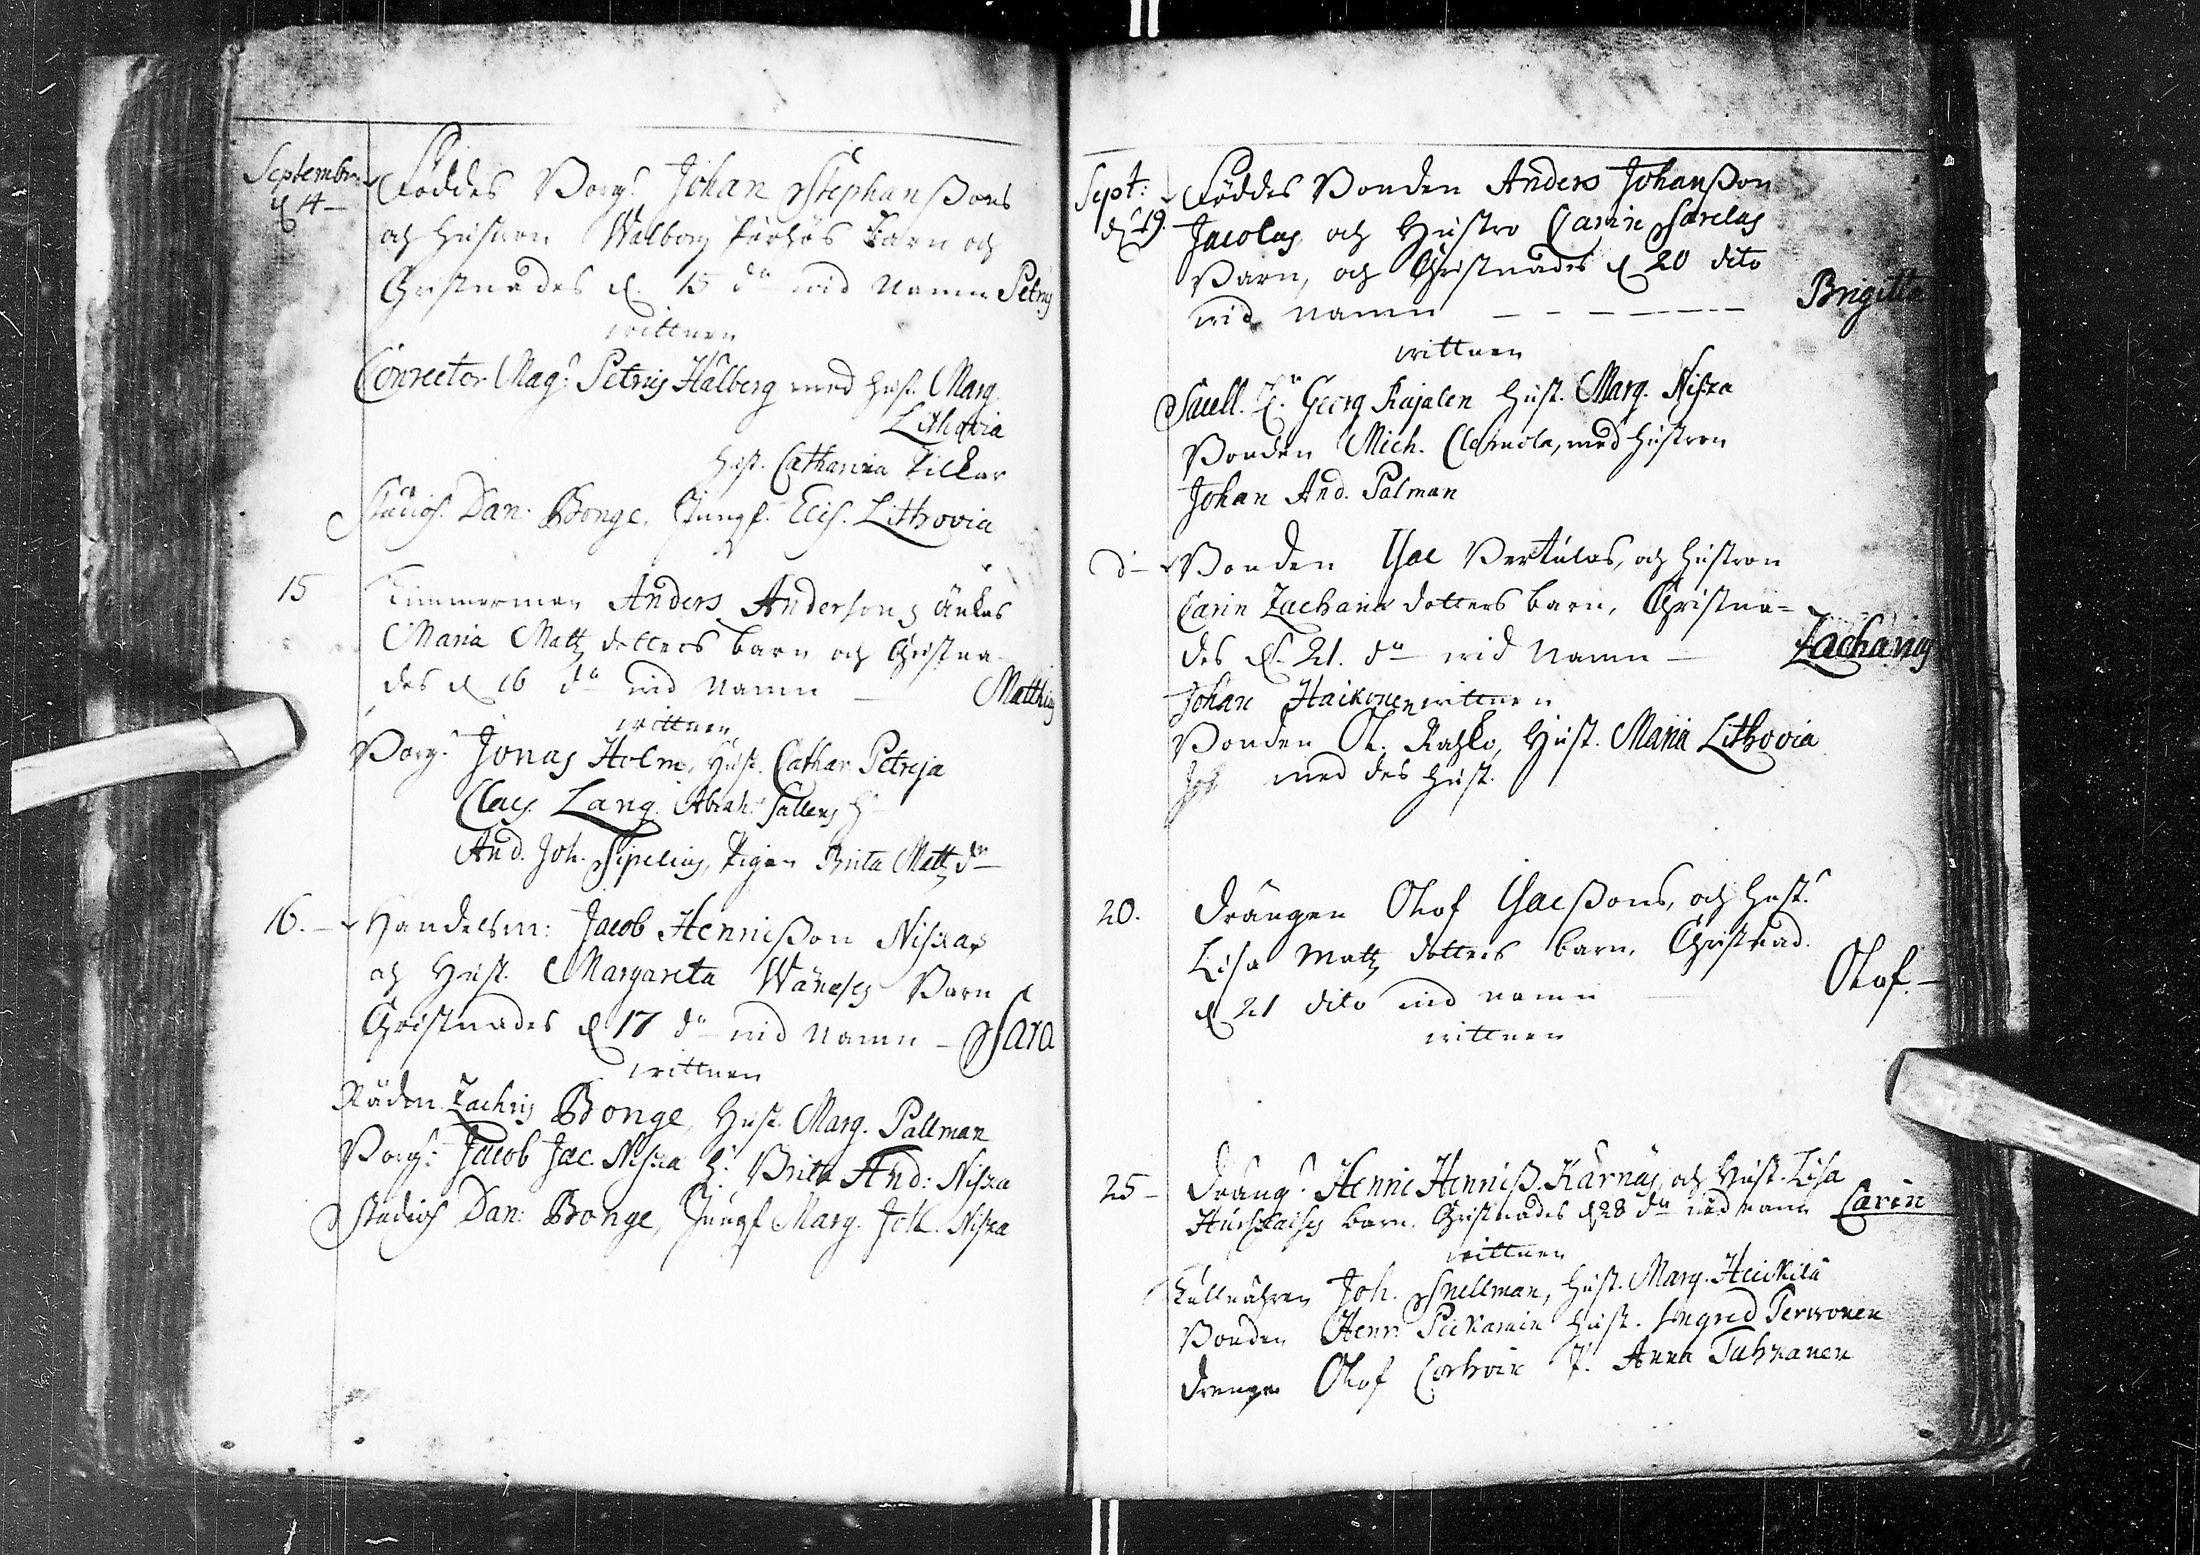 Septembr: Föddes Borg: Johan Stephanßons
d 14 – och Hustron Walborg barn och
Christnades d. 15 dº wid Namn Petrus
wittnen
Conrector Mag: Petrus Hålberg med Hust. Marg.
Lithovia
Hust. Catharina
Studios. Dan: Bonge, Jungf. Elis. Lithovia
15 Timmerman Anders Andersons änkas
Maria Matz dotters barn och Christna
des d 16 dº wid Namn – Matthias
wittnen
Borg: Jonas Holm, Hust. Cathar. Petreja
Claes. Lang. Abrah.
And. Joh. Sipelius, Pigan Brita Matz dr
16. – Handelsm: Jacob Hennißon Niska
och Hust. Margareta Wänesis Barn
Christnades d 17 dº wid Namn – Sara
wittnen
Rådm. Zachris Bonge, Hust. Marg. Pallman
Borg: Jacob Jac Niska H: Brita And: Niska
Studios Dan: Bonge, Jungf Marg. Joh. Niska
Sept: Föddes Bonden Anders Johanßon
d 19. Jacolas och Hustro Carin Sarelas
Barn, och Christnades d 20 dito
wid namn – – – – – – Brigitta
wittnen
Sacell. H: Georg Kajalen Hust. Marg. Niska
Bonden Mich. Clemola, med Hustron
Johan And. Palman
d – Bonden Isac Pertulas, och Hustron
Carin Zacharia dotters barn, Christna=
des d. 21. dº wid Namn – Zacharias
Johan Haikonen wittnen
Bonden Ol. Rahko, Hust. Maria Lithovia
med des Hust.
20. Drängen Olof Isacßons, och Hust:
Lisa Matz dotters barn, Christnad.
d 21 dito wid namn – Olof. –
wittnen
25 – Dräng: Henric Henricß. Kärnäs, och Hust. Lisa
barn. Christnades d 28 dº wid namn Carin
wittnen
Joh. Snellman, Hust. Marg. Heickilä
Bonden Henr. Peckarain Hust. Ingrid Perwonen
Drengen Olof Corhoin P. Anna Tuhkanen